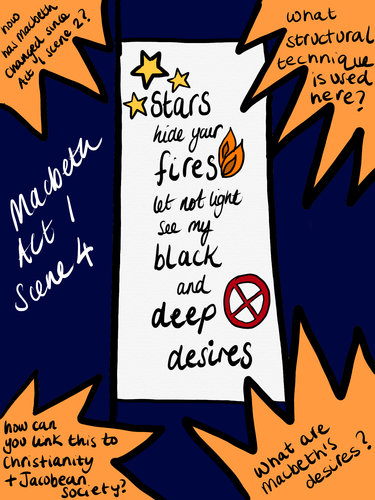 how
has macbeth
changed since
Act 1 scene 2?
what
structural
technique
is used
here?
Macbeth
Act 1
Scene 4
stars
hide your
fires
let not light
see my
black
and
deep
desires
how can
you link this to
Christianity
+ Jacobean
society?
what are
macbeth's
desires?